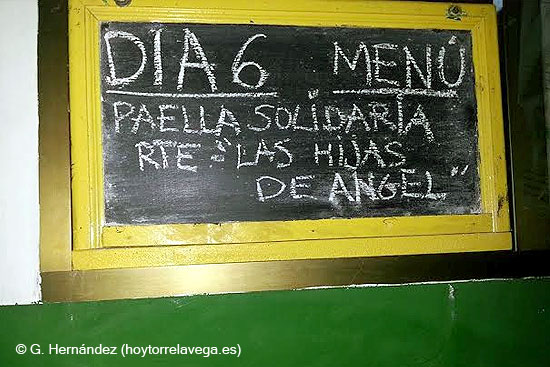 DIA 6 MENÚ
PAELLA SOLIDARIA
RTE: "LAS HIJAS
DE ANGEL"
© G. Hernández (hoytorrelavega.es)